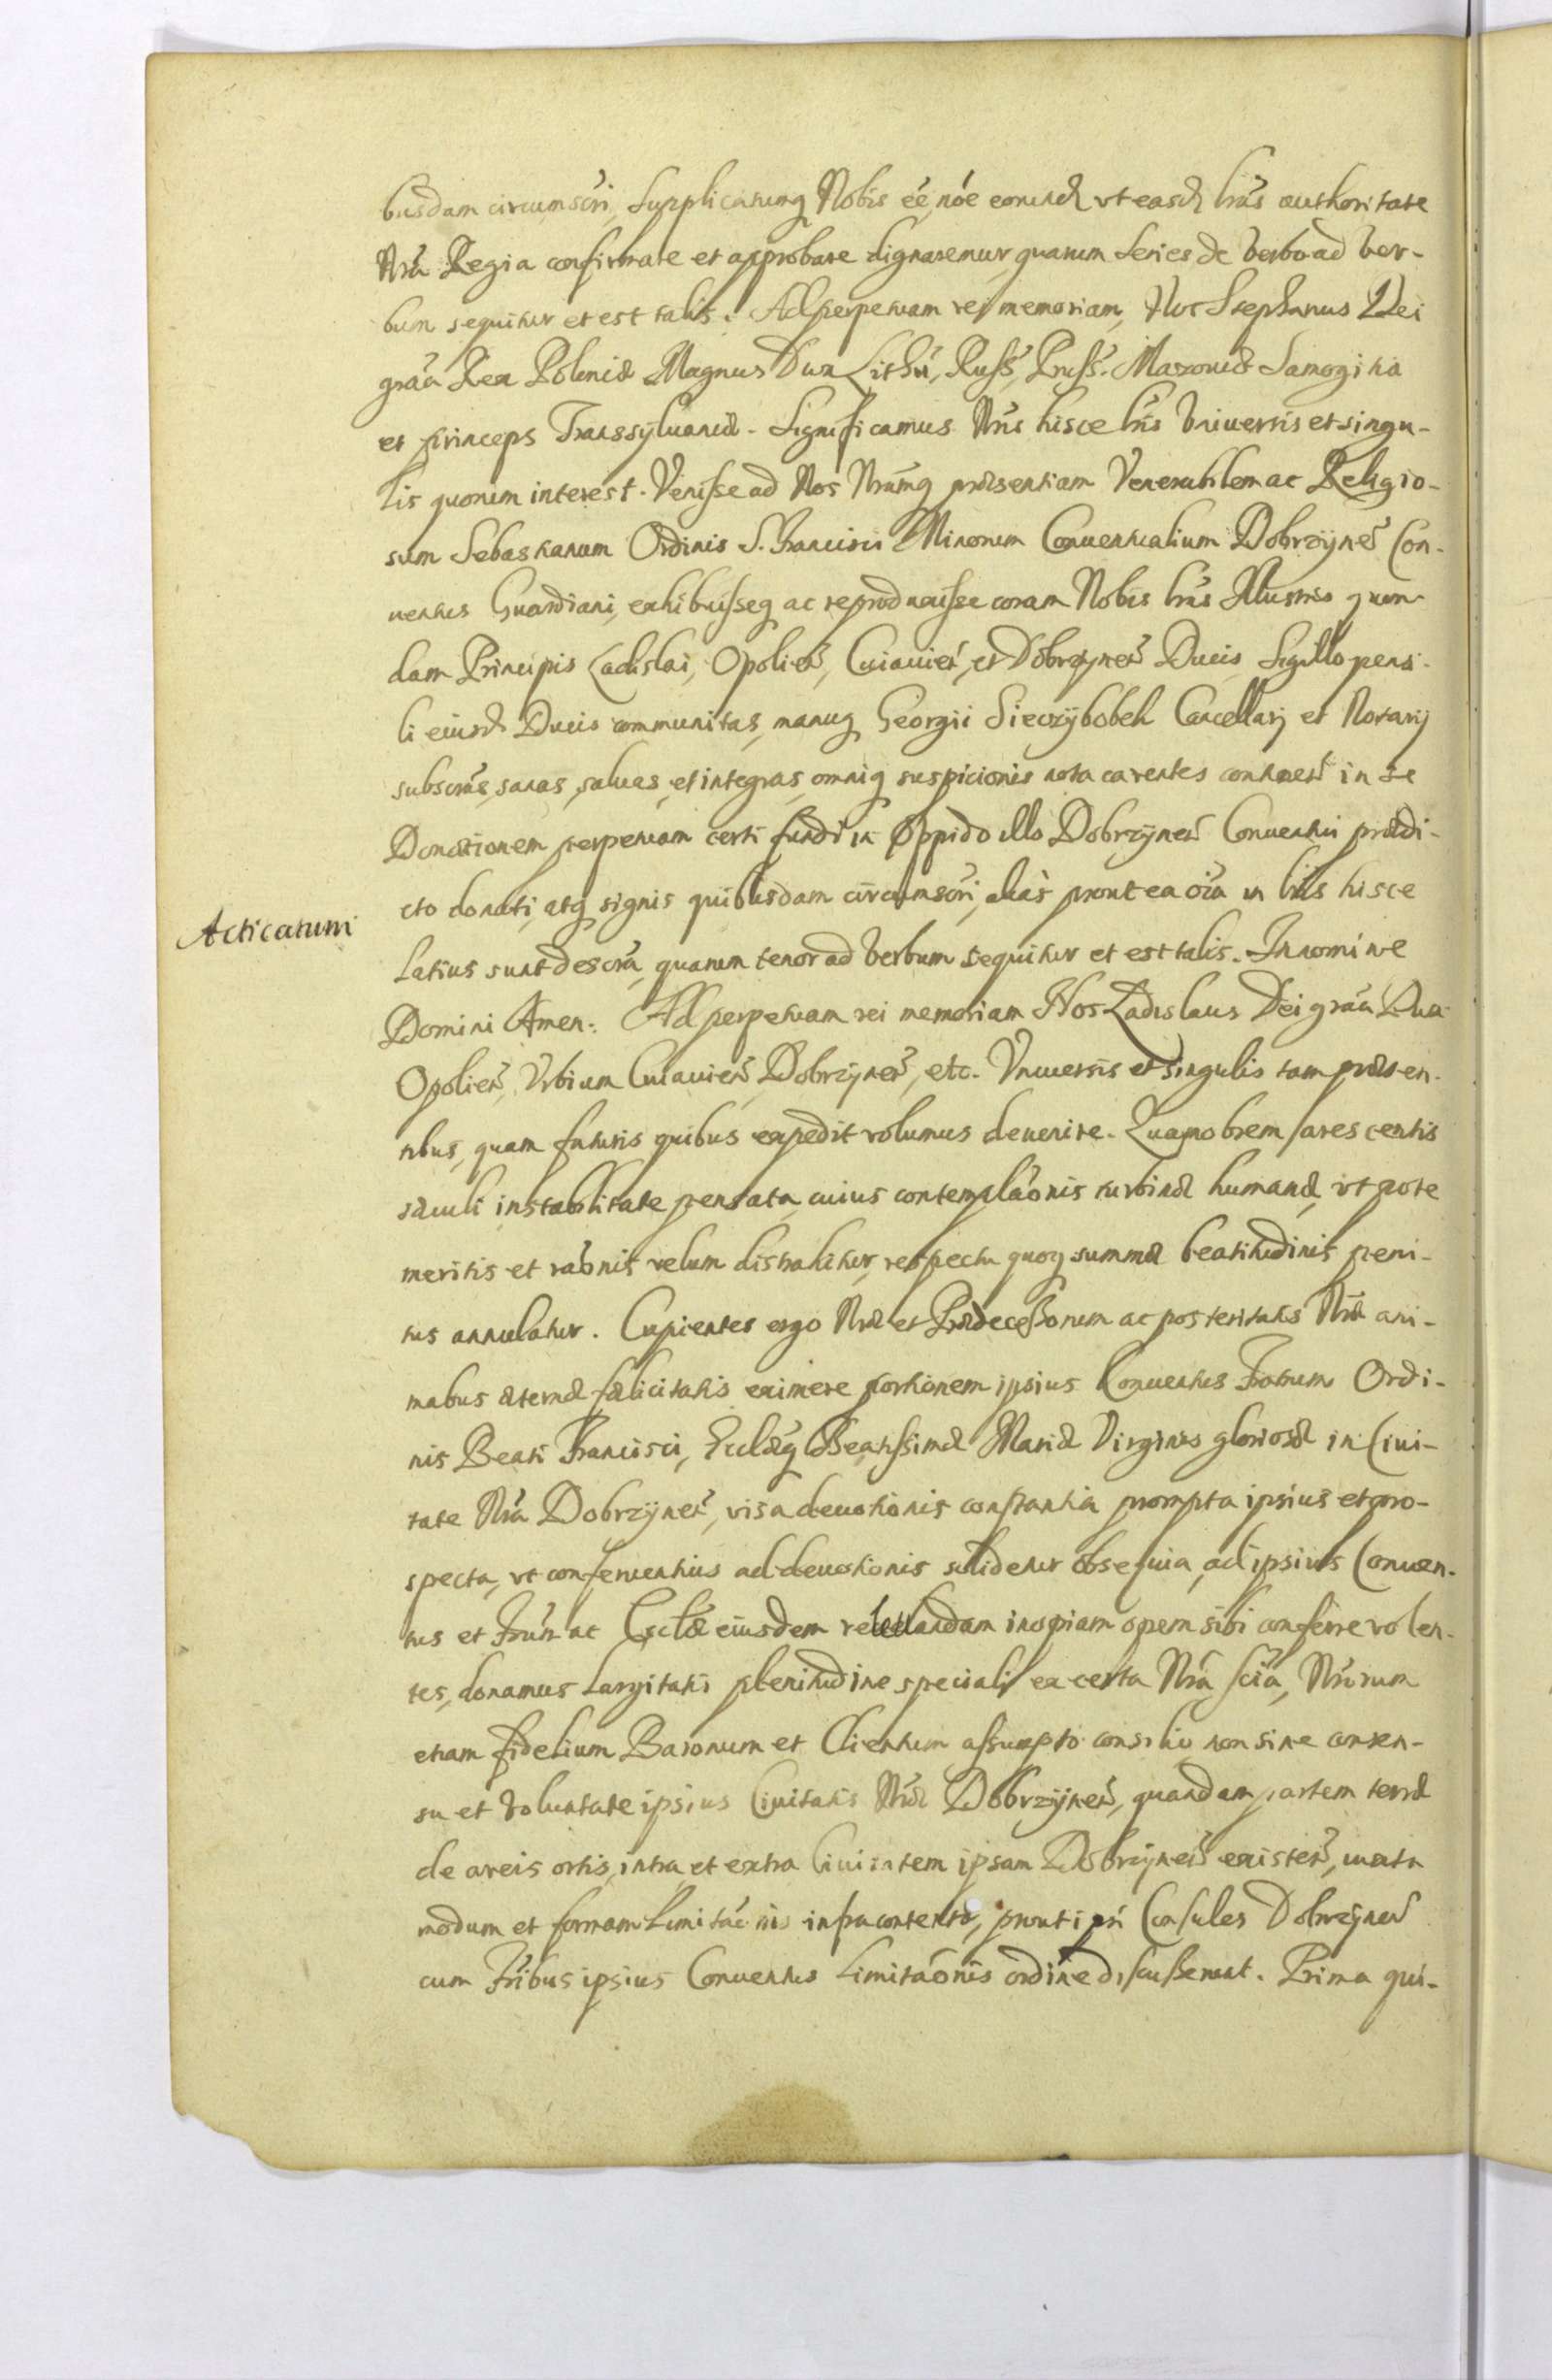 busdam circumscri, Supplicatumq Nobis eé, nóe eorund vt easd lras authoritate
Nrá Regia confirmare et approbare dignaremur, quarum Series de verbo ad ver-
bum sequitur et est talis. Ad perpetuam rei memoriam, Nos Stephanus Dei
gráa Rex Poloniæ Magnus Dux Lithú, Russ, Pruss. Mazouiæ Samogitia
et princeps Transsÿluaniæ. Significamus Nris hisce lris Vniuersis et singu-
lis quorum interest. Venisse ad Nos Nramq præsentiam Venerabilem ac Religio-
sum Sebastianum Ordinis S. Francisci Minorum Conuentualium Dobrzÿneñ Con-
uentus Guardiani, exhibuisseq ac reproduxisse coram Nobis lras Illustris quon-
dam Principis Ladislai, Opolieñ, Cuiauieñ, et Dobrzÿneñ Ducis, Sigillo pensi-
li eiusd Ducis communitas, manuq Georgii Sieczÿbobek Cancellarij et Notarij
subscrás, sanas, saluas, et integras, omniq suspicionis nota carentes continen in se
Donationem perpetuam certi fundi in Oppido illo Dobrzÿneñ Conuentui prædi-
cto donati, atq signis quibusdam circumscri, aliàs prout ea oía in lris hisce
Acticatum
latius sunt descrá, quarum tenor ad verbum sequitur et est talis. In nomine
Domini Amen. Ad perpetuam rei memoriam Nos Ladislaus Dei gráa Dux
Opolieñ, Vrbium Cuiauieñ Dobrzÿneñ, etc. Vniuersis et singulis tam præsen-
tibus, quam futuris quibus expedit volumus deuenire. Quamobrem fatescentis
sæculi instabilitate pensata, cuius contempláonis turbinæ humanæ, vt pote
meritis et raónis velum distrahitur, respectu quoq summæ beatitudinis peni-
tus annulatur. Cupientes ergo Nræ et Prædecessorum ac posteritatis Nræ ani-
mabus æternæ fælicitatis eximere portionem ipsius Conuentus Fratrum Ordi-
nis Beati Francisci, Ecclæq Beatissimæ Mariæ Virginis gloriosæ in Ciui-
tate Nrá Dobrzÿneñ, visa deuotionis constantia prompta ipsius et pro-
specta, vt conferuentius ad deuotionis solidetur obsequia, ad ipsius Conuen-
tus et Frum ac Ecclæ eiusdem releuandam inopiam opem sibi conferre volen-
tes, donamus largitatis plenitudine speciali ex certa Nrá sciá, Nrorum
etiam fidelium Baronum et Clientum assumpto consilio non sine consen-
su et voluntate ipsius Ciuitatis Nræ Dobrzÿneñ, quandam partem terræ
de areis ortis, intra et extra Ciuitatem ipsam Dobrzÿneñ existeñ, iuxta
modum et formam Limitáonis infra contentæ, prout ipsi Consules Dobrzÿneñ
cum Fribus ipsius Conuentus Limitáonis ordine discusserunt. Prima qui-